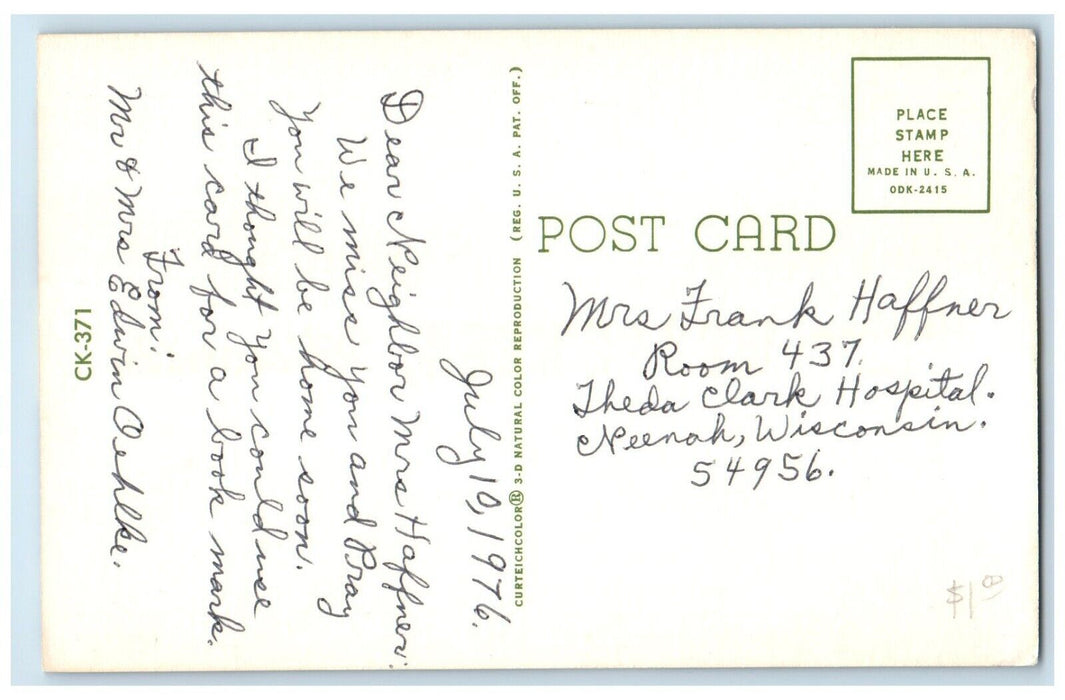 July 10, 1976.
Dear Neighbor Mrs Haffner:
We miss you and Pray
You will be home soon.
I thought You could use
this card for a book mark.
From:
Mr & Mrs Edwin Oehlke.
CK-371
CURTEICHCOLOR® 3-D NATURAL COLOR REPRODUCTION (REG. U. S. A. PAT. OFF.)
PLACE
STAMP
HERE
MADE IN U. S. A.
ODK-2415
POST CARD
Mrs Frank Haffner
Room 437.
Theda Clark Hospital.
Neenah, Wisconsin.
54956.
$1 00